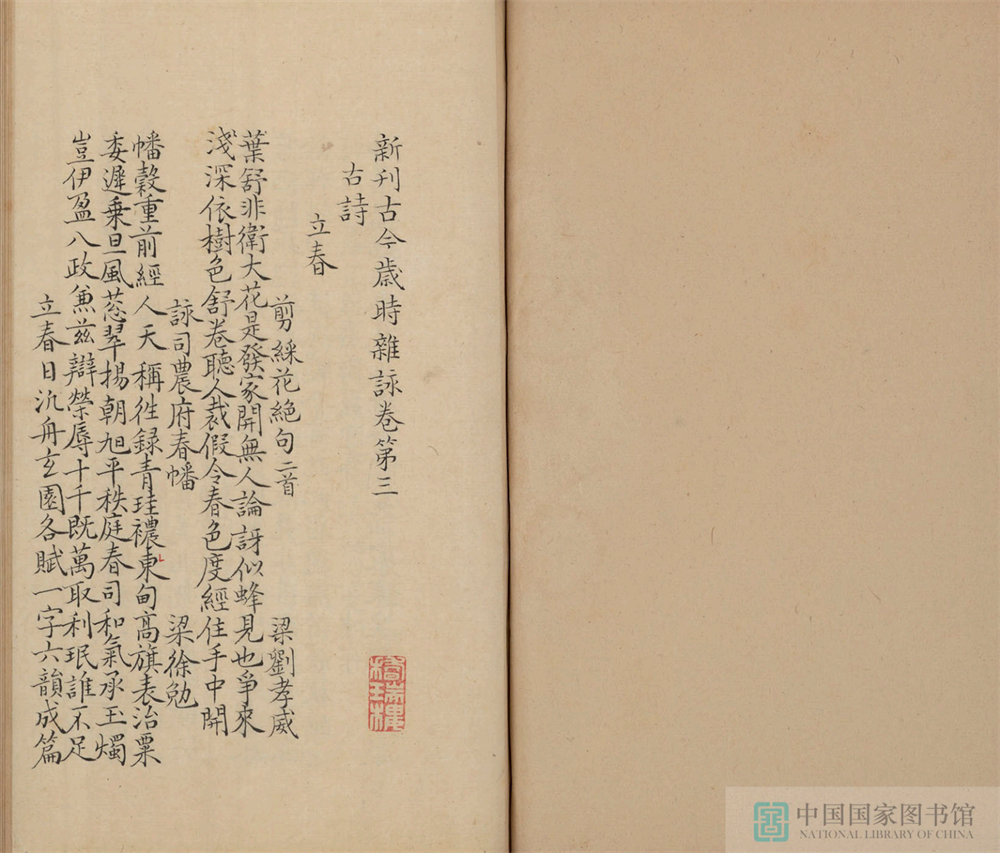 新刊古今歲時雜詠卷第三
古詩
立春
剪綵花絶句二首 梁劉孝威
葉舒非衛大花是發家開無人論訝似蜂見也爭來
淺深依樹色舒卷聽人裁假令春色度經住手中開
詠司農府春幡 梁徐勉
幡轂重前經人天稱徃録青珪禯東甸高旗表治粟
委遲乗旦風葱翠揚朝旭平秩庭春司和氣承玉燭
豈伊盈八政兼茲辯榮辱十千既萬取利珉誰不足
立春日汎舟玄園各賦一字六韻成篇
中国国家图书馆
NATIONAL LIBRARY OF CHINA